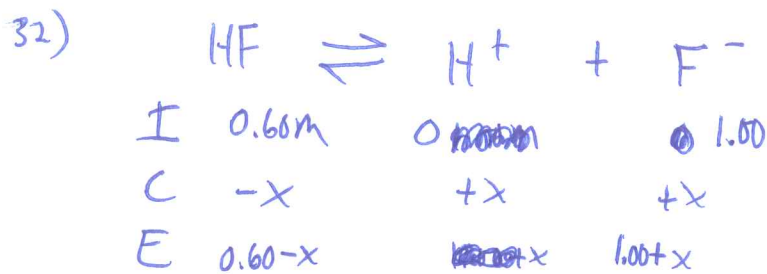 32) HF ⇌ H⁺ + F⁻
I 0.60M 0 1.00
C -x +x +x
E 0.60-x +x 1.00+x